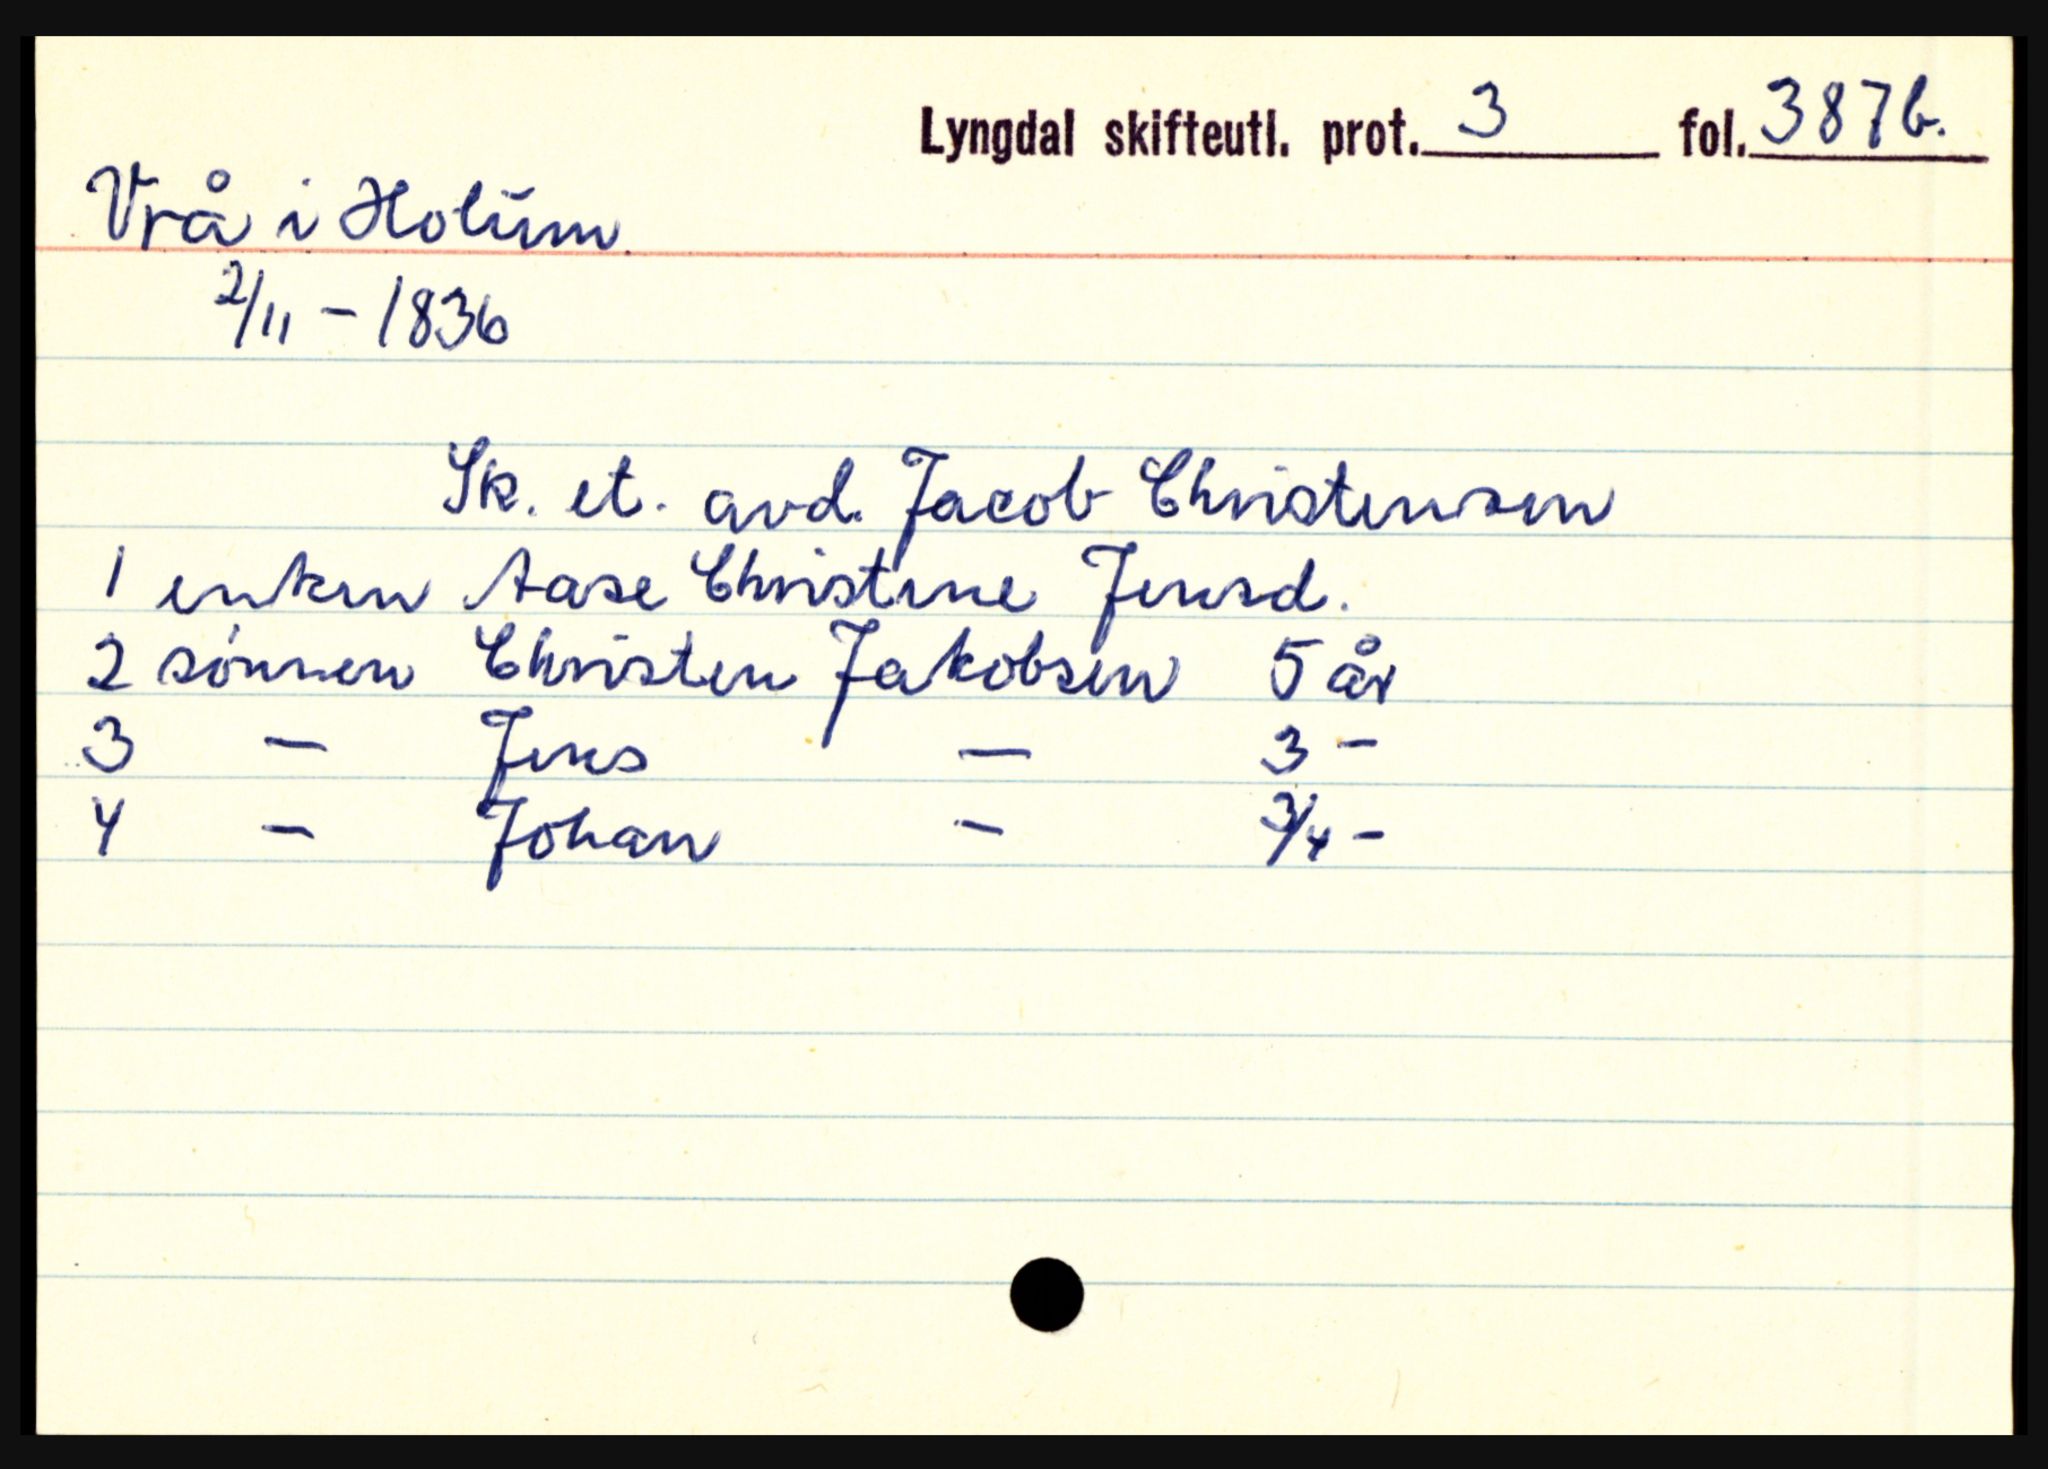 Lyngdal skifteutl. prot. 3 fol. 387b.
Vrå i Holum
2/11 - 1836
Sk. et. avd. Jacob Christensen
1 enken Aase Christine Jensd.
2 sønnen Christen Jakobsen 5 år
3 — Jens — 3 -
4 — Johan - 3/4 -